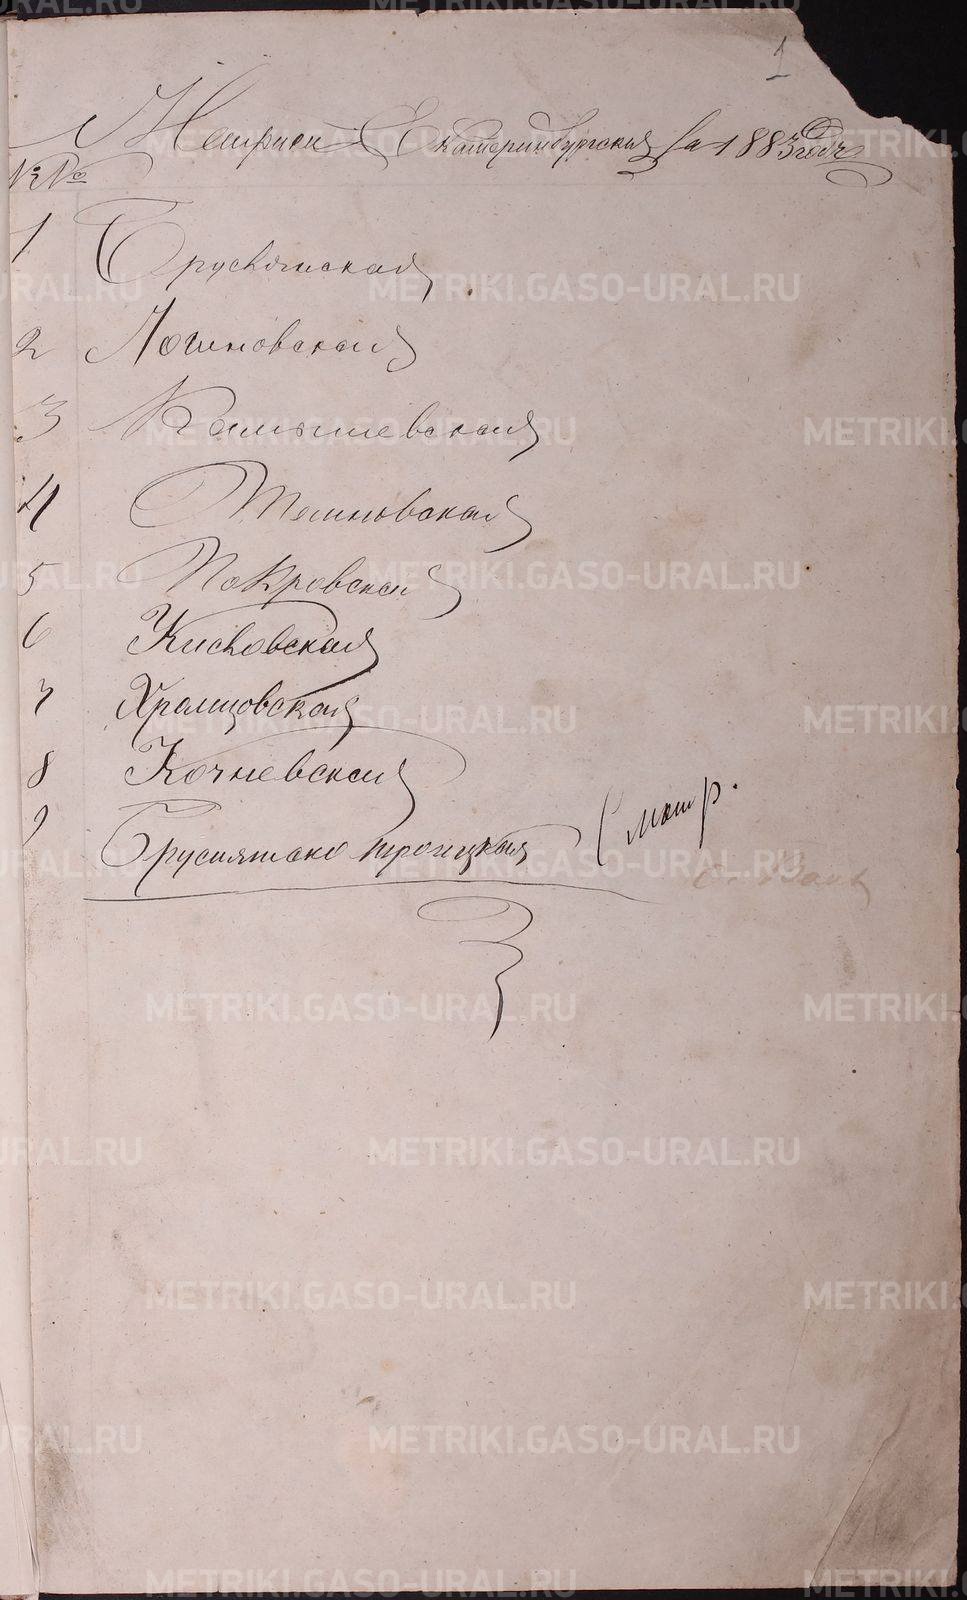 1
Метрики Екатеринбургския за 1883 годъ
№№
1 Бруснятская
2 Логиновская
3 Камышевская
4 Темновская
5 Покровская
6 Кисловская
7 Храмцовская
8 Кочневская
9 Бруснятско троицкая
Смотр.
METRIKI.GASO-URAL.RU